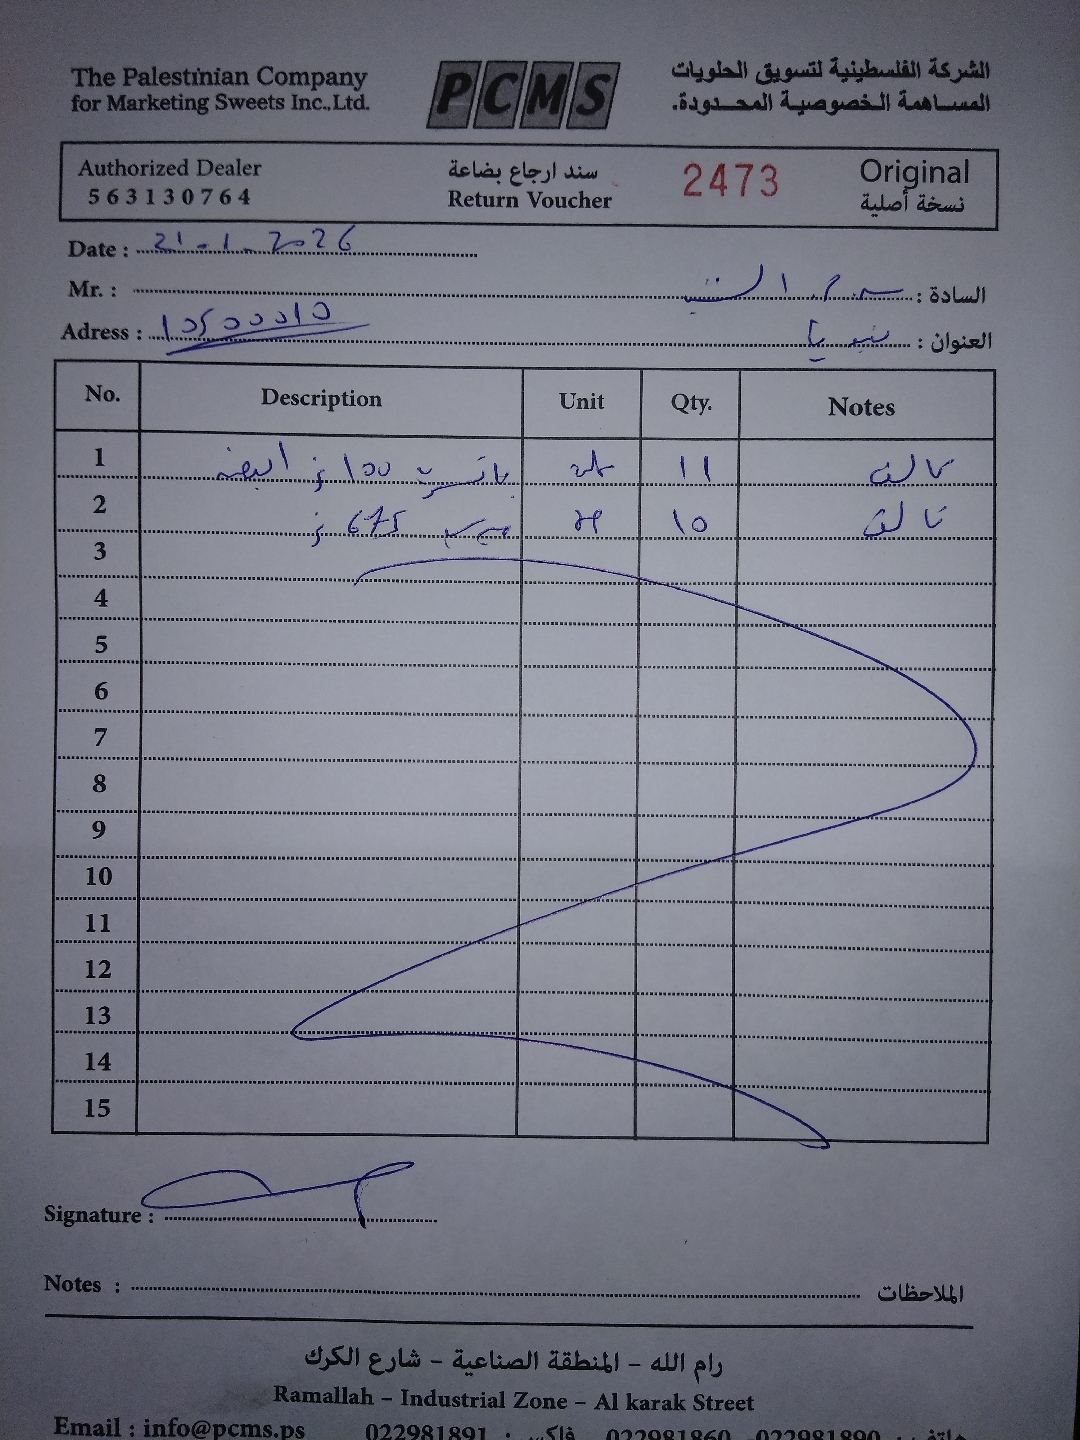 The Palestinian Company
for Marketing Sweets Inc.,Ltd.
PCMS
الشركة الفلسطينية لتسويق الحلويات
المساهمة الخصوصية المحدودة.
Authorized Dealer
563130764
سند ارجاع بضاعة
Return Voucher
2473
Original
نسخة أصلية
Date : 21-1-2026
Mr. : السادة :
Adress : العنوان :
No. Description Unit Qty. Notes
1 100 غ 11 تالف
2 675 غ 10 تالف
3
4
5
6
7
8
9
10
11
12
13
14
15
Signature :
Notes : الملاحظات
رام الله - المنطقة الصناعية - شارع الكرك
Ramallah - Industrial Zone - Al karak Street
Email : info@pcms.ps 022981891 : فاكس 022981860 -022981890 : هاتف